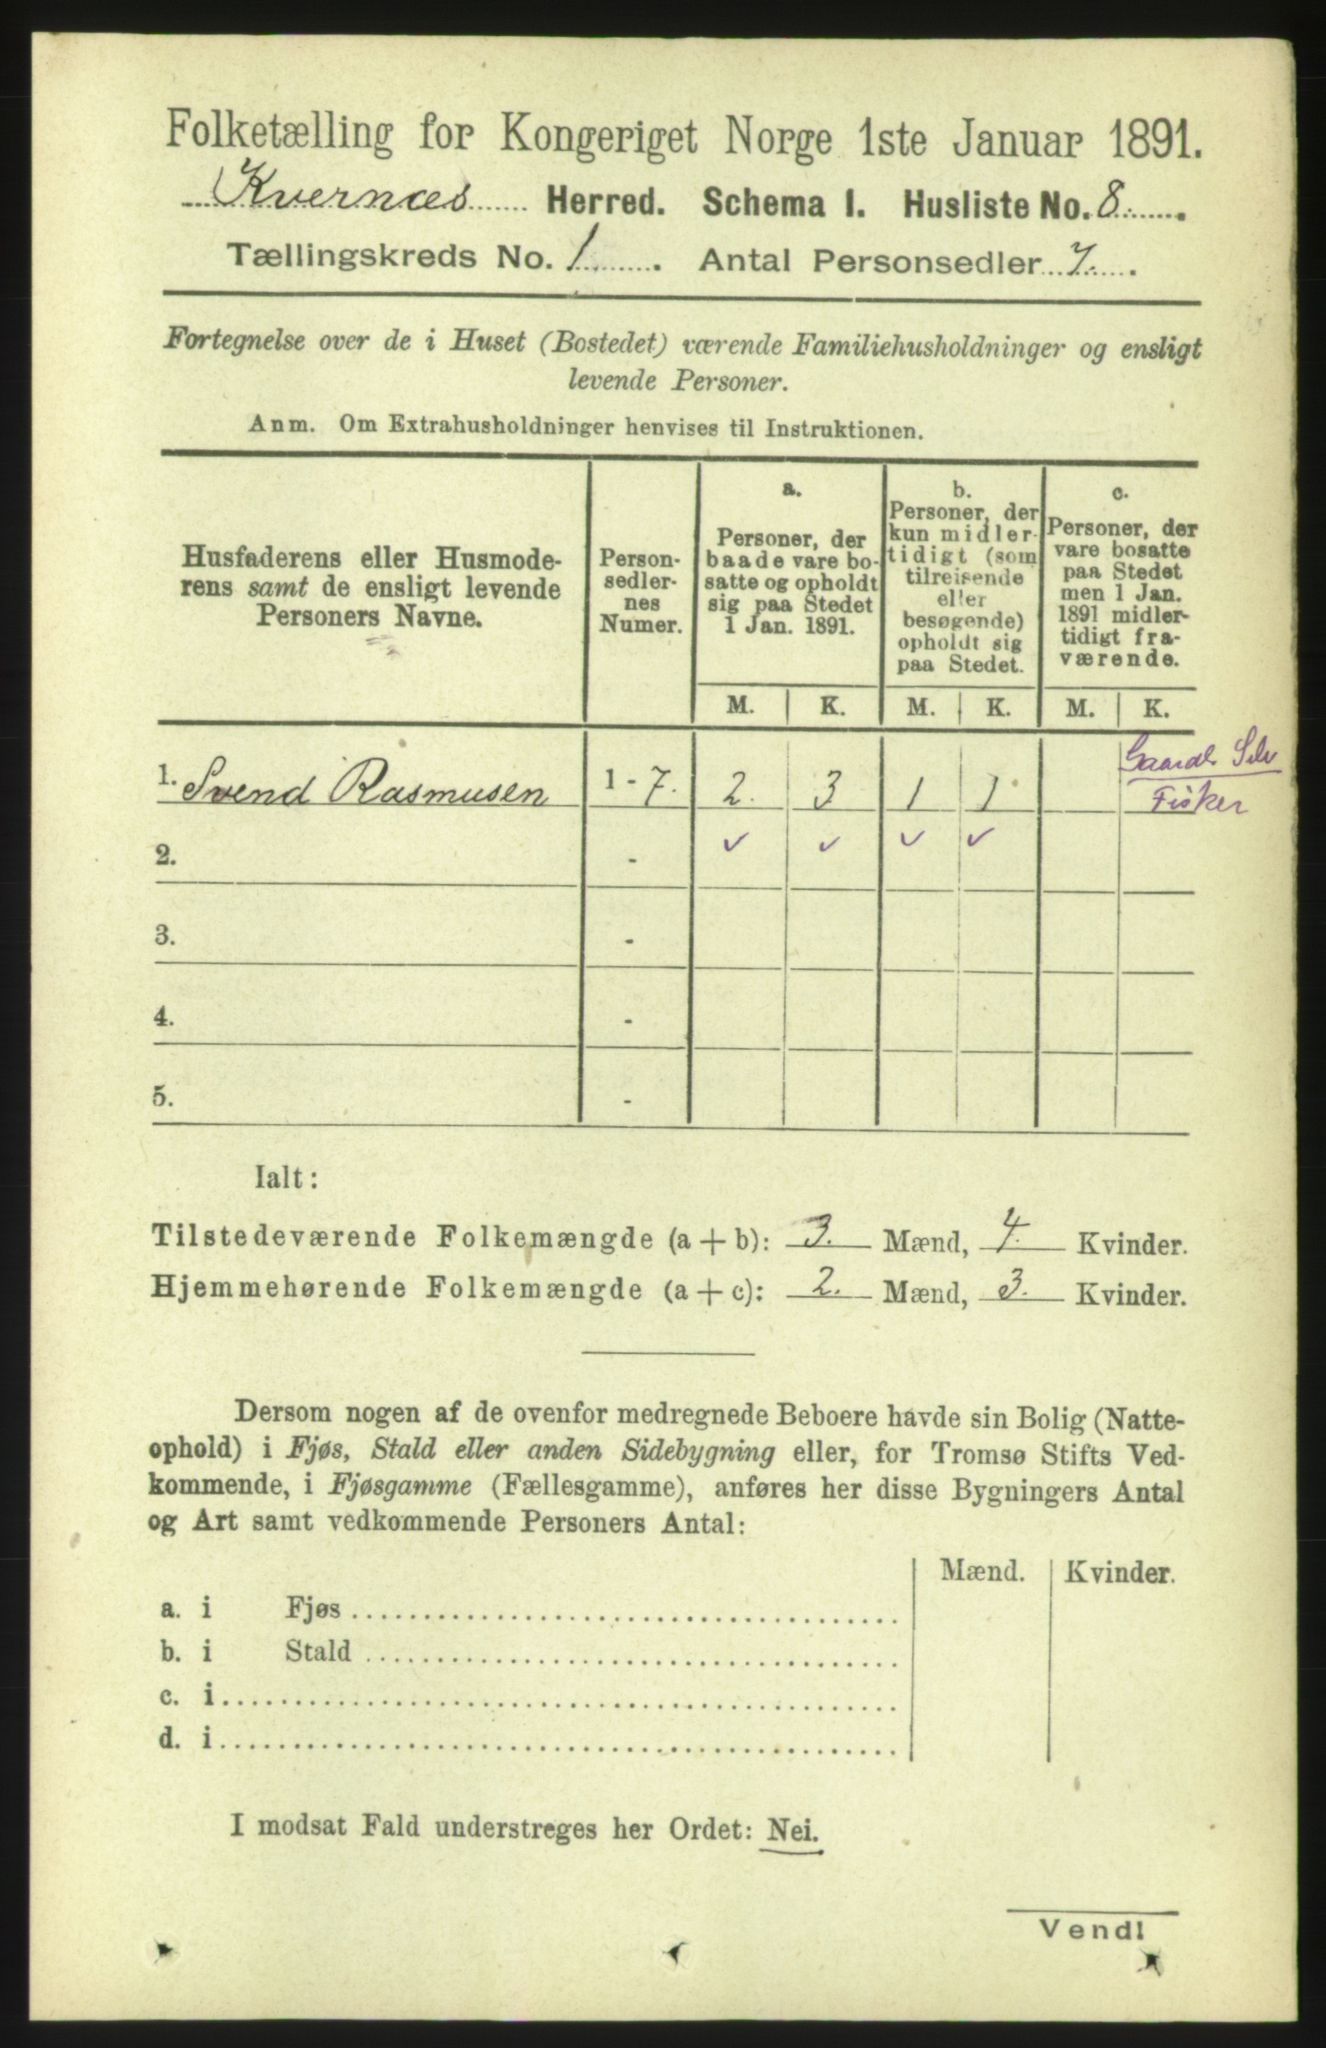 Folketælling for Kongeriget Norge 1ste Januar 1891.
Kvernæs Herred. Schema 1. Husliste No. 8.
Tællingskreds No. 1. Antal Personsedler 7.
Fortegnelse over de i Huset (Bostedet) værende Familiehusholdninger og ensligt
levende Personer.
Anm. Om Extrahusholdninger henvises til Instruktionen.
Husfaderens eller Husmode-
rens samt de ensligt levende
Personers Navne.
Person-
sedler-
nes
Numer.
a.
Personer, der
baade vare bo-
satte og opholdt
sig paa Stedet
1 Jan. 1891.
b.
Personer, der
kun midler-
tidigt (som
tilreisende
eller
besøgende)
opholdt sig
paa Stedet.
c.
Personer, der
vare bosatte
paa Stedet
men 1 Jan.
1891 midler-
tidigt fra-
værende.
M. K. M. K. M. K.
1. Svend Rasmusen 1 - 7. 2. 3 1 1 Gaardb. Selv
Fisker
2. - ✓ ✓ ✓ ✓
3. -
4. -
5. -
Ialt:
Tilstedeværende Folkemængde (a + b): 3. Mænd, 4. Kvinder.
Hjemmehørende Folkemængde (a + c): 2. Mænd, 3. Kvinder.
Dersom nogen af de ovenfor medregnede Beboere havde sin Bolig (Natte-
ophold) i Fjøs, Stald eller anden Sidebygning eller, for Tromsø Stifts Ved-
kommende, i Fjøsgamme (Fællesgamme), anføres her disse Bygningers Antal
og Art samt vedkommende Personers Antal:
Mænd. Kvinder.
a. i Fjøs
b. i Stald
c. i
d. i
I modsat Fald understreges her Ordet: Nei.
Vendl